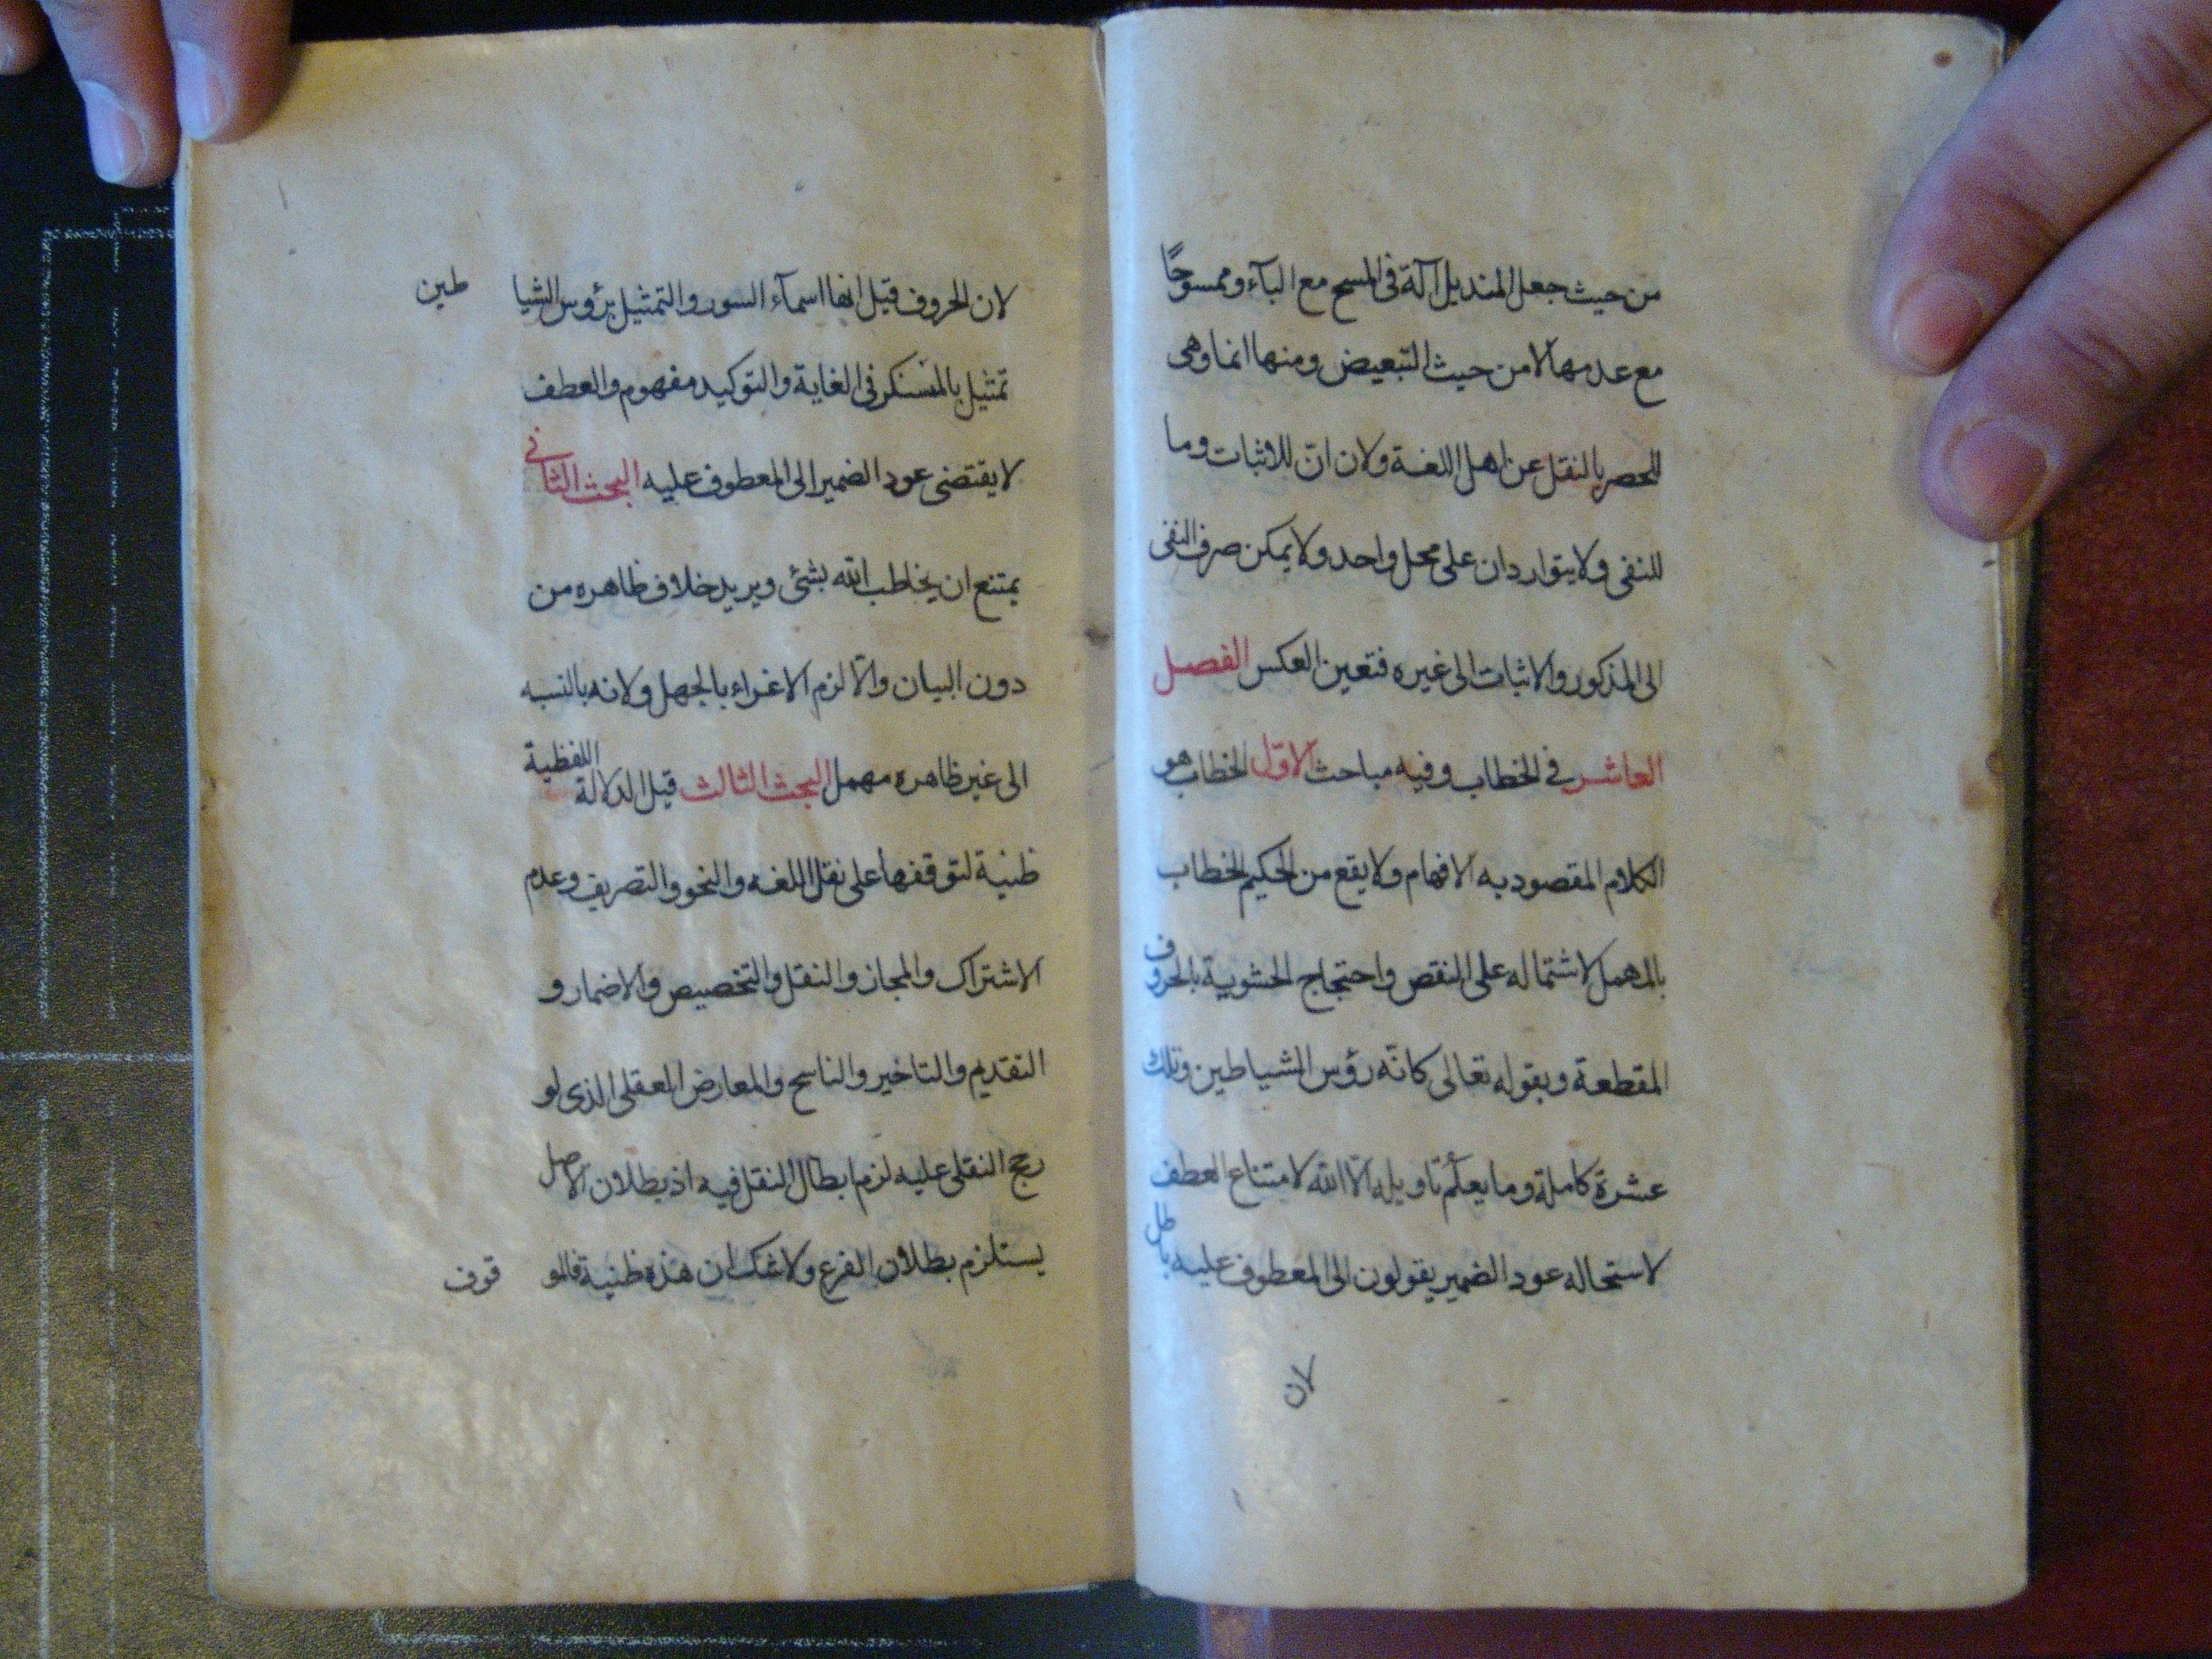 من حيث جعل المنديل آلة فى المسح مع البآء وممسوحًا
مع عدمها لا من حيث التبعيض ومنها انما وهى
للحصر بالنقل عن اهل اللغة ولان انّ للاثبات وما
للنفى ولا يتواردان على محل واحد ولا يمكن صرف النفى
الى المذكور والاثبات الى غيره فتعين العكس الفصل
العاشر فى الخطاب وفيه مباحث الاول الخطاب هو
الكلام المقصود به الافهام ولا يقع من الحكيم الخطاب
بالمهمل لاشتماله على النقص واحتجاج الحشوية بالحروف
المقطعة وبقوله تعالى كانّه رؤس الشياطين وتلك
عشرة كاملة وما يعلم تاويله الّا الله لامتناع العطف
لاستحاله عود الضمير يقولون الى المعطوف عليه باطل
لان
لان الحروف قيل انها اسمآء السور والتمثيل برؤس الشيا طين
تمثيل بالمستنكر فى الغاية والتوكيد مفهوم والعطف
لا يقتضى عود الضمير الى المعطوف عليه البحث الثانى
يمتنع ان يخاطب الله بشئ ويريد خلاف ظاهره من
دون البيان والّا لزم الاغراء بالجهل ولانه بالنسبه
الى غير ظاهره مهمل البحث الثالث قيل الدلالة اللفظية
ظنية لتوقفها على نقل اللغه والنحو والتصريف وعدم
الاشتراك والمجاز والنقل والتخصيص والاضمار و
التقديم والتاخير والناسخ والمعارض العقلى الذى لو
رجح النقلى عليه لزم ابطال النقل فيه اذ بطلان الاصل
يستلزم بطلان الفرع ولا شك ان هذه ظنية فالمو قوف